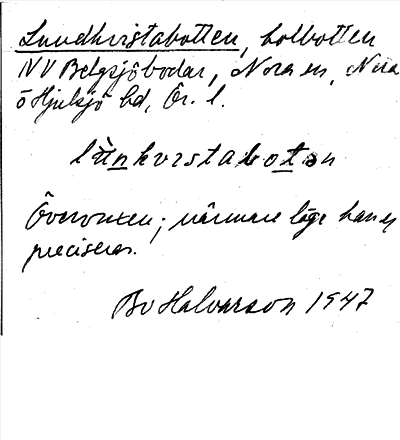 Lundkvistabotten, kolbotten
NV Belgsjöbodar, Nora sn, Nora
o Hjulsjö bd, Ör. l.
lùnkvistabotən
Övervuxen; närmare läge kan ej
preciseras.
Bo Halvarson 1947